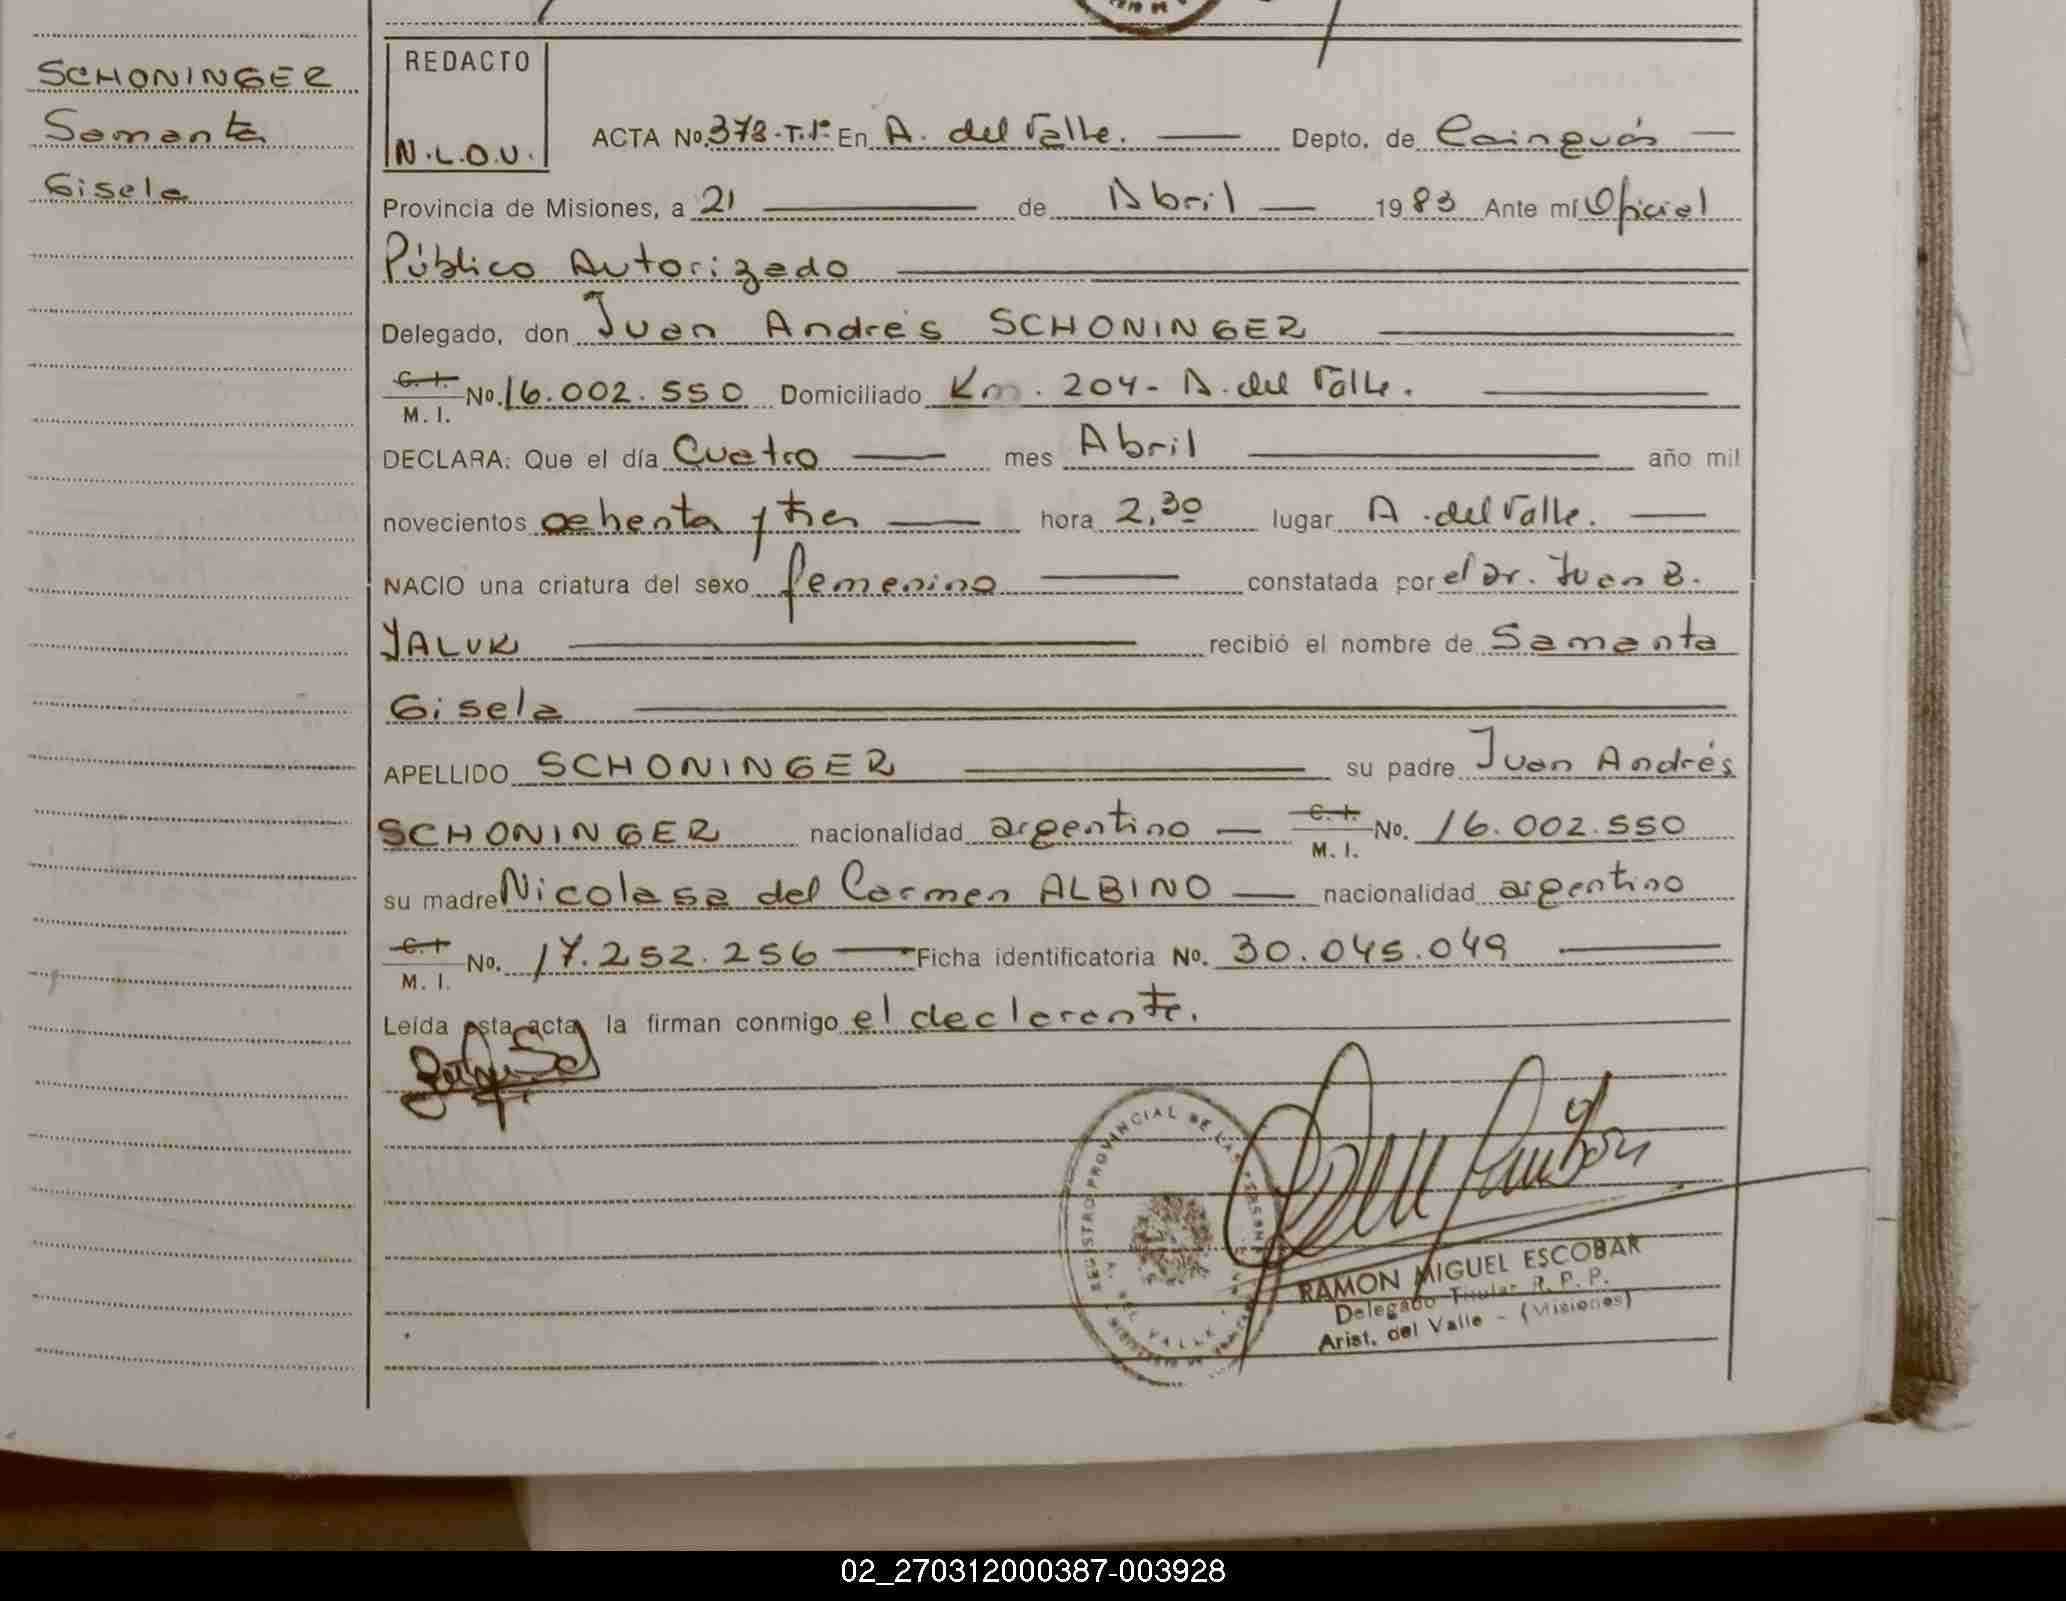 SCHONINGER
Samanta
Gisela
REDACTO
N.L.O.U.
ACTA No. 373-T.1º En A. del Valle. Depto. de Cainguás
Provincia de Misiones, a 21 de Abril 1983 Ante mí Oficial
Público Autorizado
Delegado, don Juan Andrés SCHONINGER
C. I. M. I. No. 16.002.550 Domiciliado Km. 204- A. del Valle.
DECLARA: Que el día Cuatro mes Abril año mil
novecientos ochenta y tres hora 2,30 lugar A. del Valle.
NACIO una criatura del sexo femenino constatada por el Dr. Juan B.
YALUK recibió el nombre de Samanta
Gisela
APELLIDO SCHONINGER su padre Juan Andrés
SCHONINGER nacionalidad argentino C. I. M. I. No. 16.002.550
su madre Nicolasa del Carmen ALBINO nacionalidad argentino
C. I. M. I. No. 17.252.256 Ficha identificatoria No. 30.045.049
Leída esta acta, la firman conmigo el declarante.
REGISTRO PROVINCIAL DE LAS PERSONAS
DEL VALLE
RAMON MIGUEL ESCOBAR
Delegado Titular R. P. P.
Arist. del Valle - (Misiones)
02_270312000387-003928